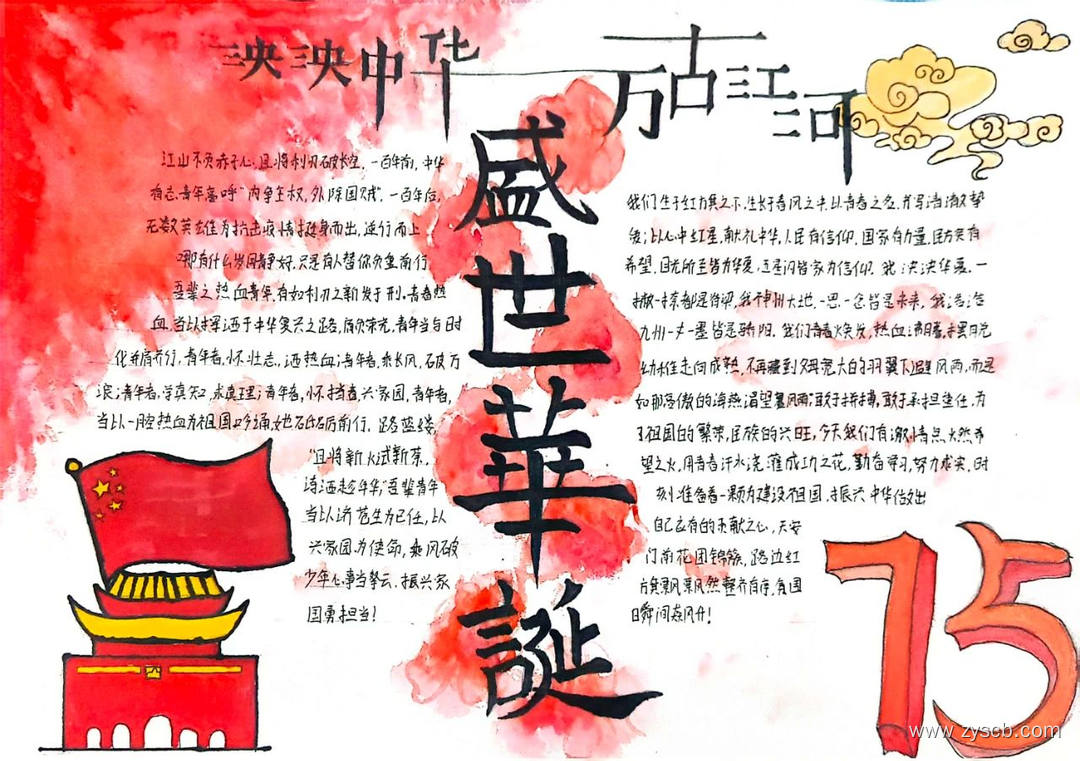 泱泱中华
万古江河
盛世華誕
江山不负赤子心,且将利刃破长空,一百年前,中华
有志青年高呼“内争主权,外除国贼”.一百年后,
无数英雄为抗击疫情挺身而出,逆行而上
哪有什么岁月静好,只是有人替你负重前行.
吾辈之热血青年,有如利刃之新发于刑.青春热
血,当以挥洒于中华复兴之路,庶次荣光,青年当与时
代并肩齐行,青年者,怀壮志,洒热血;青年者,乘长风,破万
浪;青年者,学真知,求真理;青年者,怀担当,兴家国,青年者,
当以一腔热血为祖国砥砺前行.路
“且将新火试新茶,
诗酒趁年华”吾辈青年
当以济苍生为已任,以
兴家国为使命,乘风破
少年心事当拏云,振兴家
国勇担当!
我们生于红旗之下,生长于春风之中,以青春之名,书写诗
以心中红星,献礼中华,人民有信仰,国家有力量,民族有
希望,目光所至皆为华夏,五星闪耀皆为信仰.我泱泱华夏,一
撇一捺都是脊梁,我神州大地,一思一念皆是未来,我浩浩
九州一文一墨皆是骄阳.我们青春焕发,热血沸腾,
幼稚走向成熟,不再藏到父母宽大的羽翼下避风雨,而是
如那孤傲的海燕渴望暴风雨“敢于拼搏,敢于承担责任.为
了祖国的繁荣,民族的兴旺,今天我们有激情点燃希
望之火,用青春汗水浇灌成功之花,勤奋学习,努力求实,时
刻准备着一颗为建设祖国,振兴中华作出
自己应有的贡献之心,天安
门前花团锦簇,路边红
方旗飘飘然整齐有序,每国
日瞬间焱风升!
75
www.zyscb.com